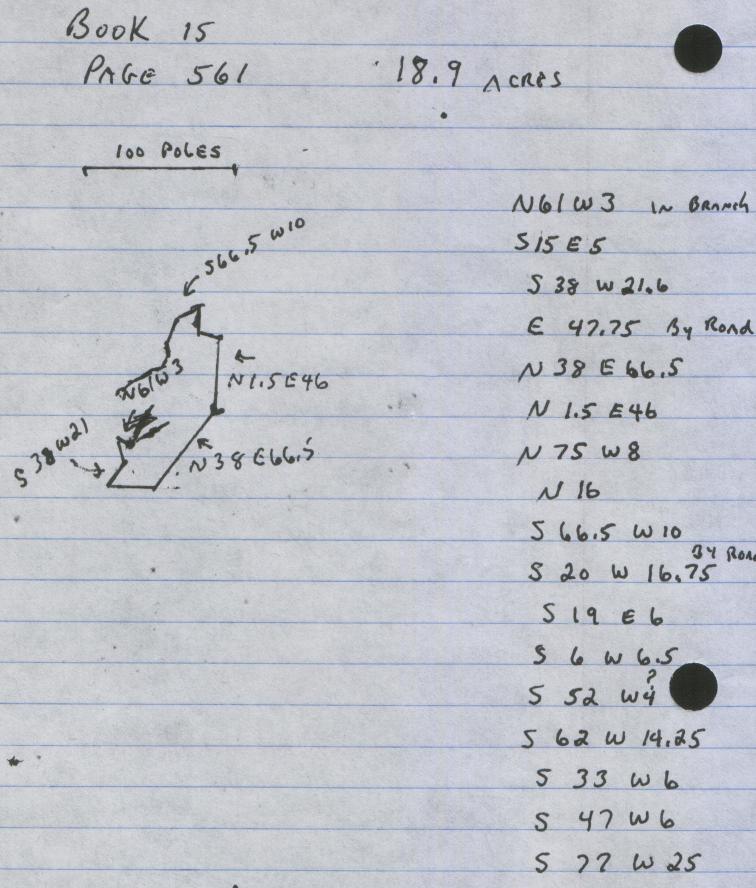 BOOK 15
PAGE 561
18.9 ACRES
100 POLES
S66.5 W10
N61W3
N1.5E46
S38W21
N38E66.5
N61W3 IN BRANCH
S15E5
S 38 W 21.6
E 47.75 By Road
N 38 E 66.5
N 1.5 E46
N 75 W 8
N 16
S 66.5 W 10
S 20 W 16.75 BY ROAD
S 19 E 6
S 6 W 6.5
S 52 W4 ?
S 62 W 14.25
S 33 W 6
S 47 W 6
S 77 W 25